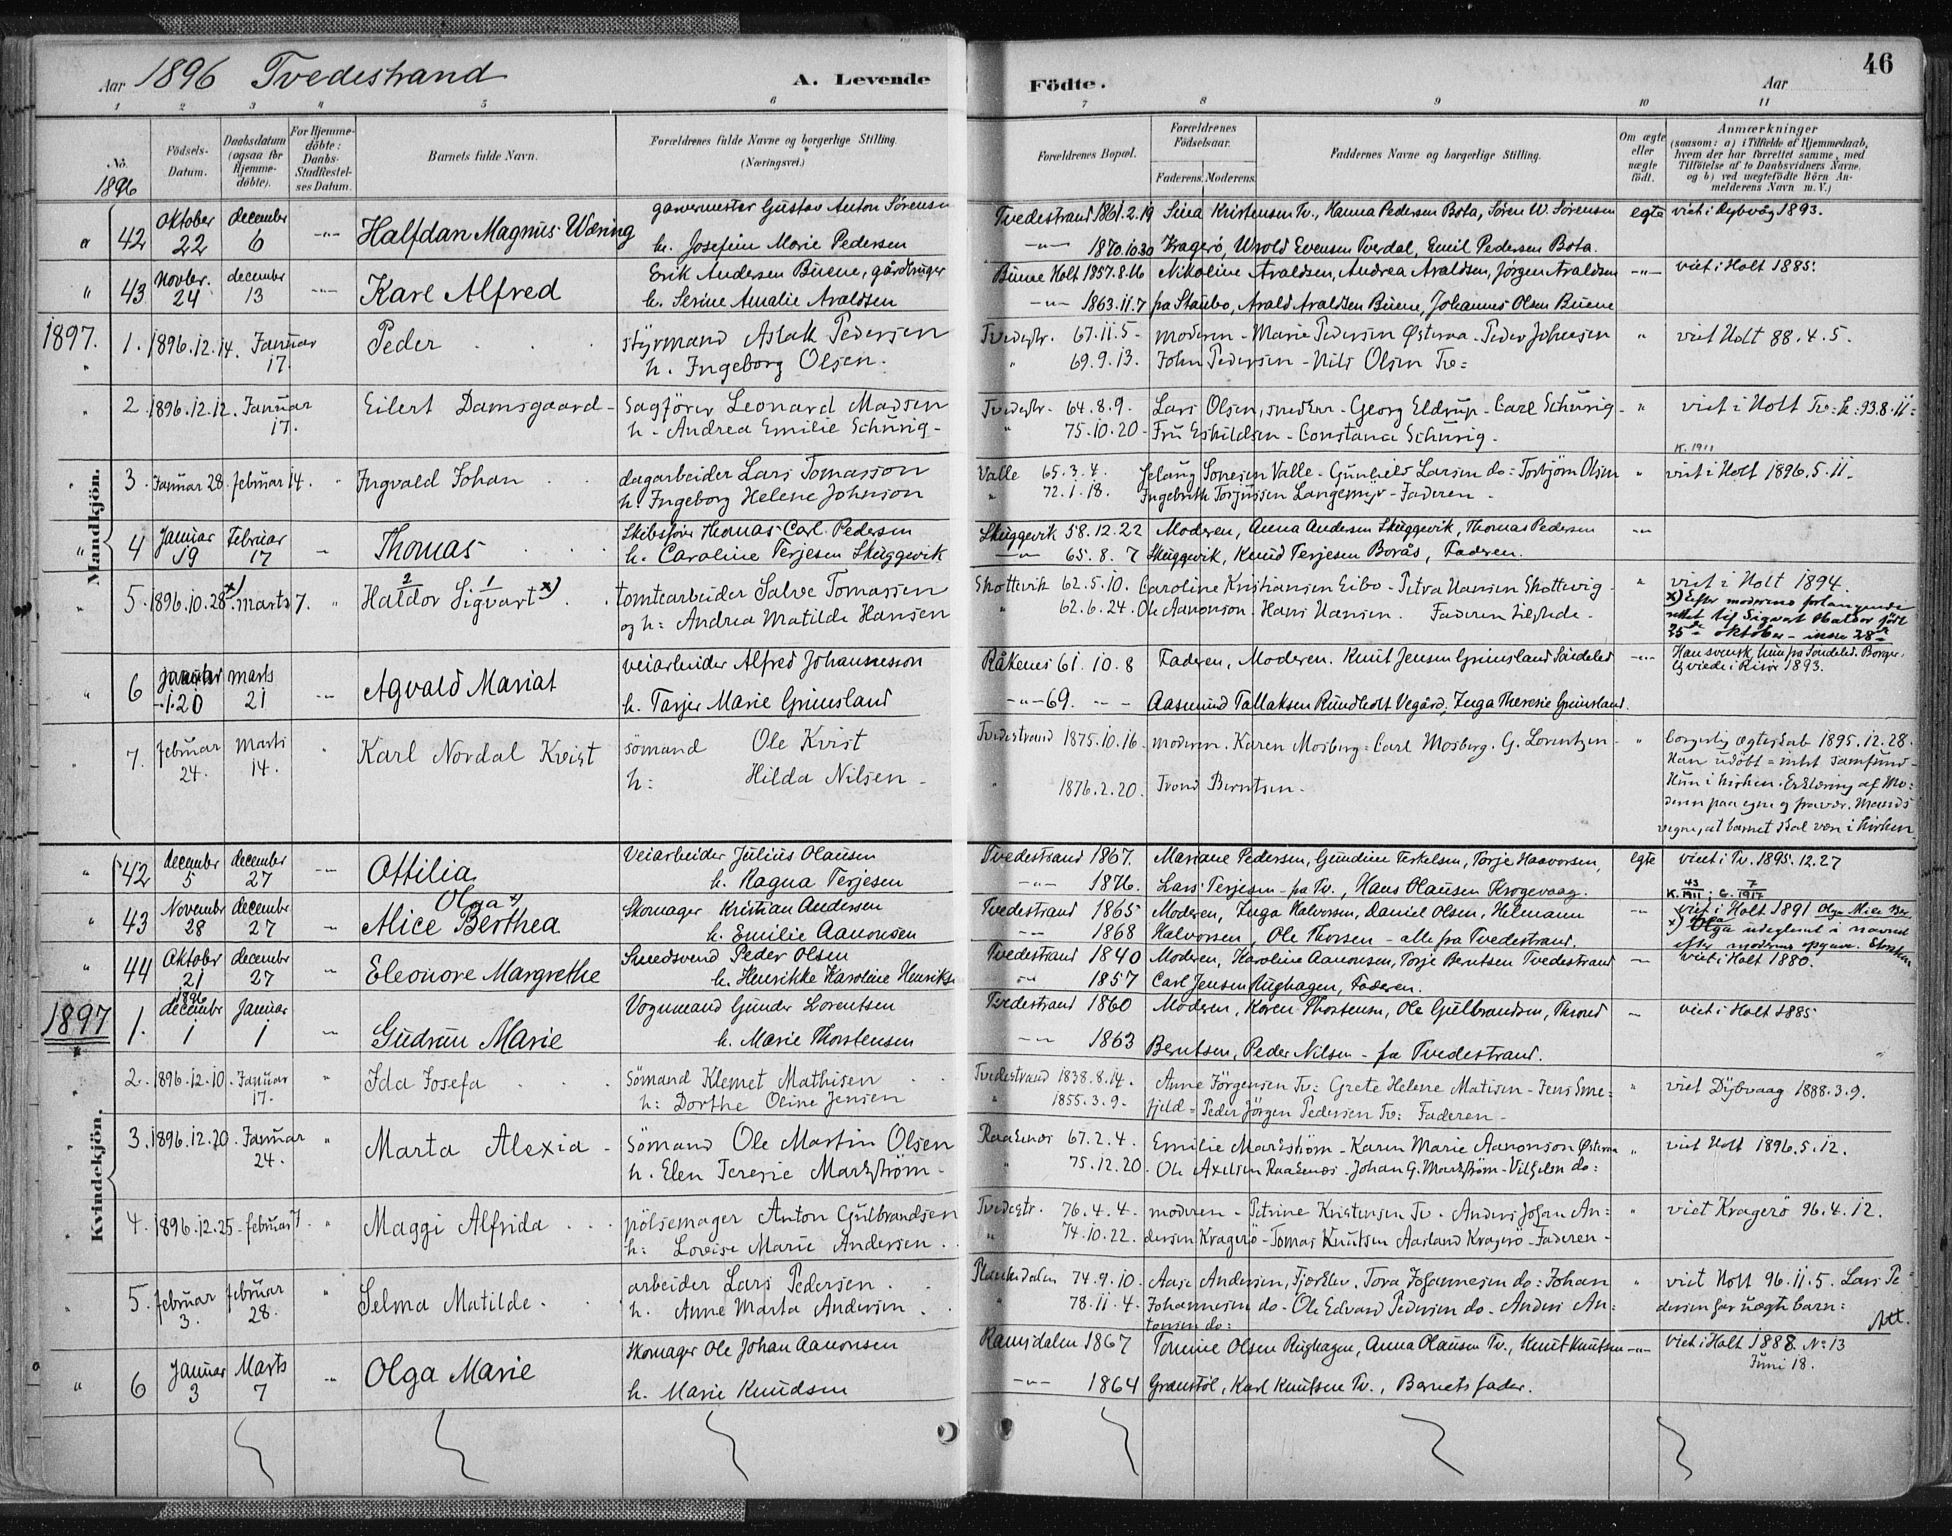 Aar 1896 Tvedestrand A. Levende Födte. Aar 46
1 2 3 4 5 6 7 8 9 10 11
No. 1896
Födsels-Datum.
Daabsdatum (ogsaa för Hjemme-döbte).
For Hjemme-döbte: Daabs-Stadfæstel-ses Datum.
Barnets fulde Navn.
Forældrenes fulde Navne og borgerlige Stilling (Næringsvei.)
Forældrenes Bopæl.
Forældrenes Födselsaar. Faderens. Moderens.
Faddernes Navne og borgerlige Stilling.
Om ægte eller uægte födt.
Anmærkninger (saasom: a) i Tilfælde af Hjemmedaab, hvem der har forrettet samme, med Tilföielse af to Daabsvidners Navne, og b) ved uægtefödte Börn An-melderens Navn m. V.)
Mandkjön.
" 42 Oktober 22 december 6 -"- Halfdan Magnus Wæring garvermester Gustav Anton Sørensen Tvedestrand 1861.2.19 Sina Kristensen Tv., Hanna Pedersen Bota, Søren W. Sørensen egte viet i Dybvåg 1893.
h. Josefine Marie Pedersen -"- 1870.10.30 Kragerö, Wrold Evensen Tverdal, Emil Pedersen Bota.
" 43 Novbr. 24 december 13 -"- Karl Alfred Erik Andersen Buene, gårdbruger Buene Holt 1857.8.16 Nikoline Avaldsen, Andrea Avaldsen, Jørgen Avaldsen -"- viet i Holt 1885.
h. Serine Amalie Avaldsen -"- 1863.11.7 fra Staubo, Avald Avaldsen Buene, Johannes Olsen Buene
1897. 1. 1896.12.14. Januar 17. Peder styrmand Aslak Pedersen Tvedestr. 67.11.5 - moderen - Marie Pedersen Østeraa - Peder Johnsen " viet Holt 88.4.5.
h. Ingeborg Olsen. " 69.9.13. John Pedersen - Nils Olsen Tv:
" 2 1896.12.12. Januar 17. Eilert Damsgaard - Sagförer Leonard Madsen Tvedestr. 64.8.9. Lars Olsen, snedker - Georg Eldrup - Carl Schurig - " viet i Holt Tv: k: 93.8.11:
h - Andrea Emilie Schurig - " 75.10.20 - Fru Eskildsen - Constance Schurig - K. 1911
" 3. Januar 28. februar 14. " Ingvald Johan dagarbeider Lars Tomasson Valle 65.3.4. Gunhild Larsen do: Torbjörn Olsen " viet i Holt 1896.5.11.
h. Ingeborg Helene Johnson " 72.1.18. Ingebrith Torjussen Langemyr - Faderen -
" 4 Januar 19 Februar 17 - Thomas Skibsfører Thomas Carl Pedersen Skuggevik 58.12.22 Moderen, Anna Andersen Skuggevik, Thomas Pedersen -"-
h. Caroline Terjesen Skuggevik -"- 65.8.7 Skuggevik, Knud Terjesen Borås, Faderen.
" 5. 1896.10.28 x) marts 7. " Haldor 2 Sigvart 1 x) tomtearbeider Salve Tomassen Skottevik 62.5.10. Caroline Kristiansen Eibo - Petra Hansen Skottevig - " viet i Holt 1894.
og h: Andrea Matilde Hansen " 62.6.24. Ole Aanonson - Hans Hansen. Faderen tilstede - x) Efter moderens forlangende rettet til Sigvart Haldor født 25de oktober - ikke 28de
" 6 januar 1.20 marts 21 -"- Agvald Mariat Veiarbeider Alfred Johannesson Råkenes 61.10.8 Faderen, Moderen. Knut Jensen Grimsland Söndeled -"- Han svensk, hun fra Søndeled. Borger-lig viede i Risør 1893.
h. Tarjer Marie Grimsland -"- 69. -- - Aasmund Tallaksen Rundholt Vegård, Inga Theresie Grimsland.
" 7. februar 24. Marts 14. " Karl Nordal Kvist sömand Ole Kvist Tvedestrand 1875.10.16 - moderen - Karen Mosberg - Carl Mosberg - G. Lorentzen - " borgerlig ægteskab 1895.12.28.
h: Hilda Nilsen - " 1876.2.20. Trond Berntsen - Han udöbt = intet samfund - Hun i kirken. Erklæring af Mo-deren paa egne og fravær. Mands vegne, at barnet skal være i kirken.
Kvindekjön.
" 42 december 5 december 27 -"- Ottilia Veiarbeider Julius Olausen Tvedestrand 1867. Mariane Pedersen, Gundine Terkelsen, Torje Haavorsen, egte viet i Tv. 1895.12.27
h. Ragna Terjesen -"- 1876. Lars Terjesen - fra Tv., Hans Olausen Krogevaag. K. 43/1911; G. 7/1917
" 43 November 28 december 27 - Olga x) Alice Berthea Skomager Kristian Andersen Tvedestrand 1865 Moderen, Inga Halvorsen, Daniel Olsen, Helmann -"- viet i Holt 1891 Olga Alice Ber.
h. Emilie Aanonsen -"- 1868 Halvorsen, Ole Thorsen - alle fra Tvedestrand. x) Olga udeglemt i navnet efter moderens opgave.
" 44 Oktober 21 december 27 - Eleonore Margrethe Smedsvend Peder Olsen Tvedestrand 1840 Moderen, Karoline Aanonsen, Torje Berntsen Tvedestrand - viet i Holt 1880.
h. Henrikke Karoline Henriks -"- 1857 Carl Jensen Rughagen, Faderen.
1897 1. 1896 decembr 1 Januar 1 - Gudrun Marie Vognmand Gunder Lorentsen Tvedestrand 1860 Moderen, Karen Thorstensen, Ole Gulbrandsen, Thrond - viet i Holt 1885
h. Marie Thorstensen -"- 1863 Berntsen, Peder Nilsen - fra Tvedestrand.
" 2. 1896.12.10. Januar 17. " Ida Josefa Sömand Klemet Mathisen Tvedestrand 1838.8.14. Anne Jörgensen Tv: Grete Helene Matisen - Jens Sme- " viet Dybvaag 1888.3.9.
h: Dorthe Oline Jensen " 1855.3.9. fjeld = Peder Jörgen Pedersen Tv: Faderen -
" 3. 1896.12.20. Januar 24. " Marta Alexia - Sömand Ole Martin Olsen Raakenes 67.2.4. Emilie Markström - Karen Marie Aanonson Østeraa " viet Holt 1896.5.12.
h. Elen Teresie Markström - " 75.12.20. Ole Axelsen Raakenæs - Johan G. Markström - Vilhelm do:
" 4. 1896.12.25 - februar 7. " Maggi Alfrida pölsemager Anton Gulbrandsen Tvedestr. 76.4.4. moderen - Petrine Kristensen Tv - Anders Johan An: " viet Kragerö 96.4.12.
h: Lovise Marie Andersen. " 74.10.22. dersen Kragerö - Tomas Knutsen Aasland Kragerö - Faderen -
" 5. februar 3. februar 28. " Selma Matilde. arbeider Lars Pedersen. Plankedalen 74.9.10. Aase Andersen, Fjærkleiv. Tora Johannesen do: Johan " viet Holt 96.11.5. Lars Pe
h. Anne Marta Andersen. " 78.11.4. Johannesen do - Ole Edvard Pedersen do - Anders An: tonsen do: dersen har uægte barn:
" 6 Januar 3 Marts 7 -"- Olga Marie Skomager Ole Johan Aanonsen Ramsdalen 1867 Tomine Olsen Rughagen, Anna Olausen Tv., Knut Knutsen -"- viet i Holt 1888. No 13 Juni 18.
h. Marie Knudsen -"- 1864 Grønstöl, Karl Knutsen Tv., Barnets fader.